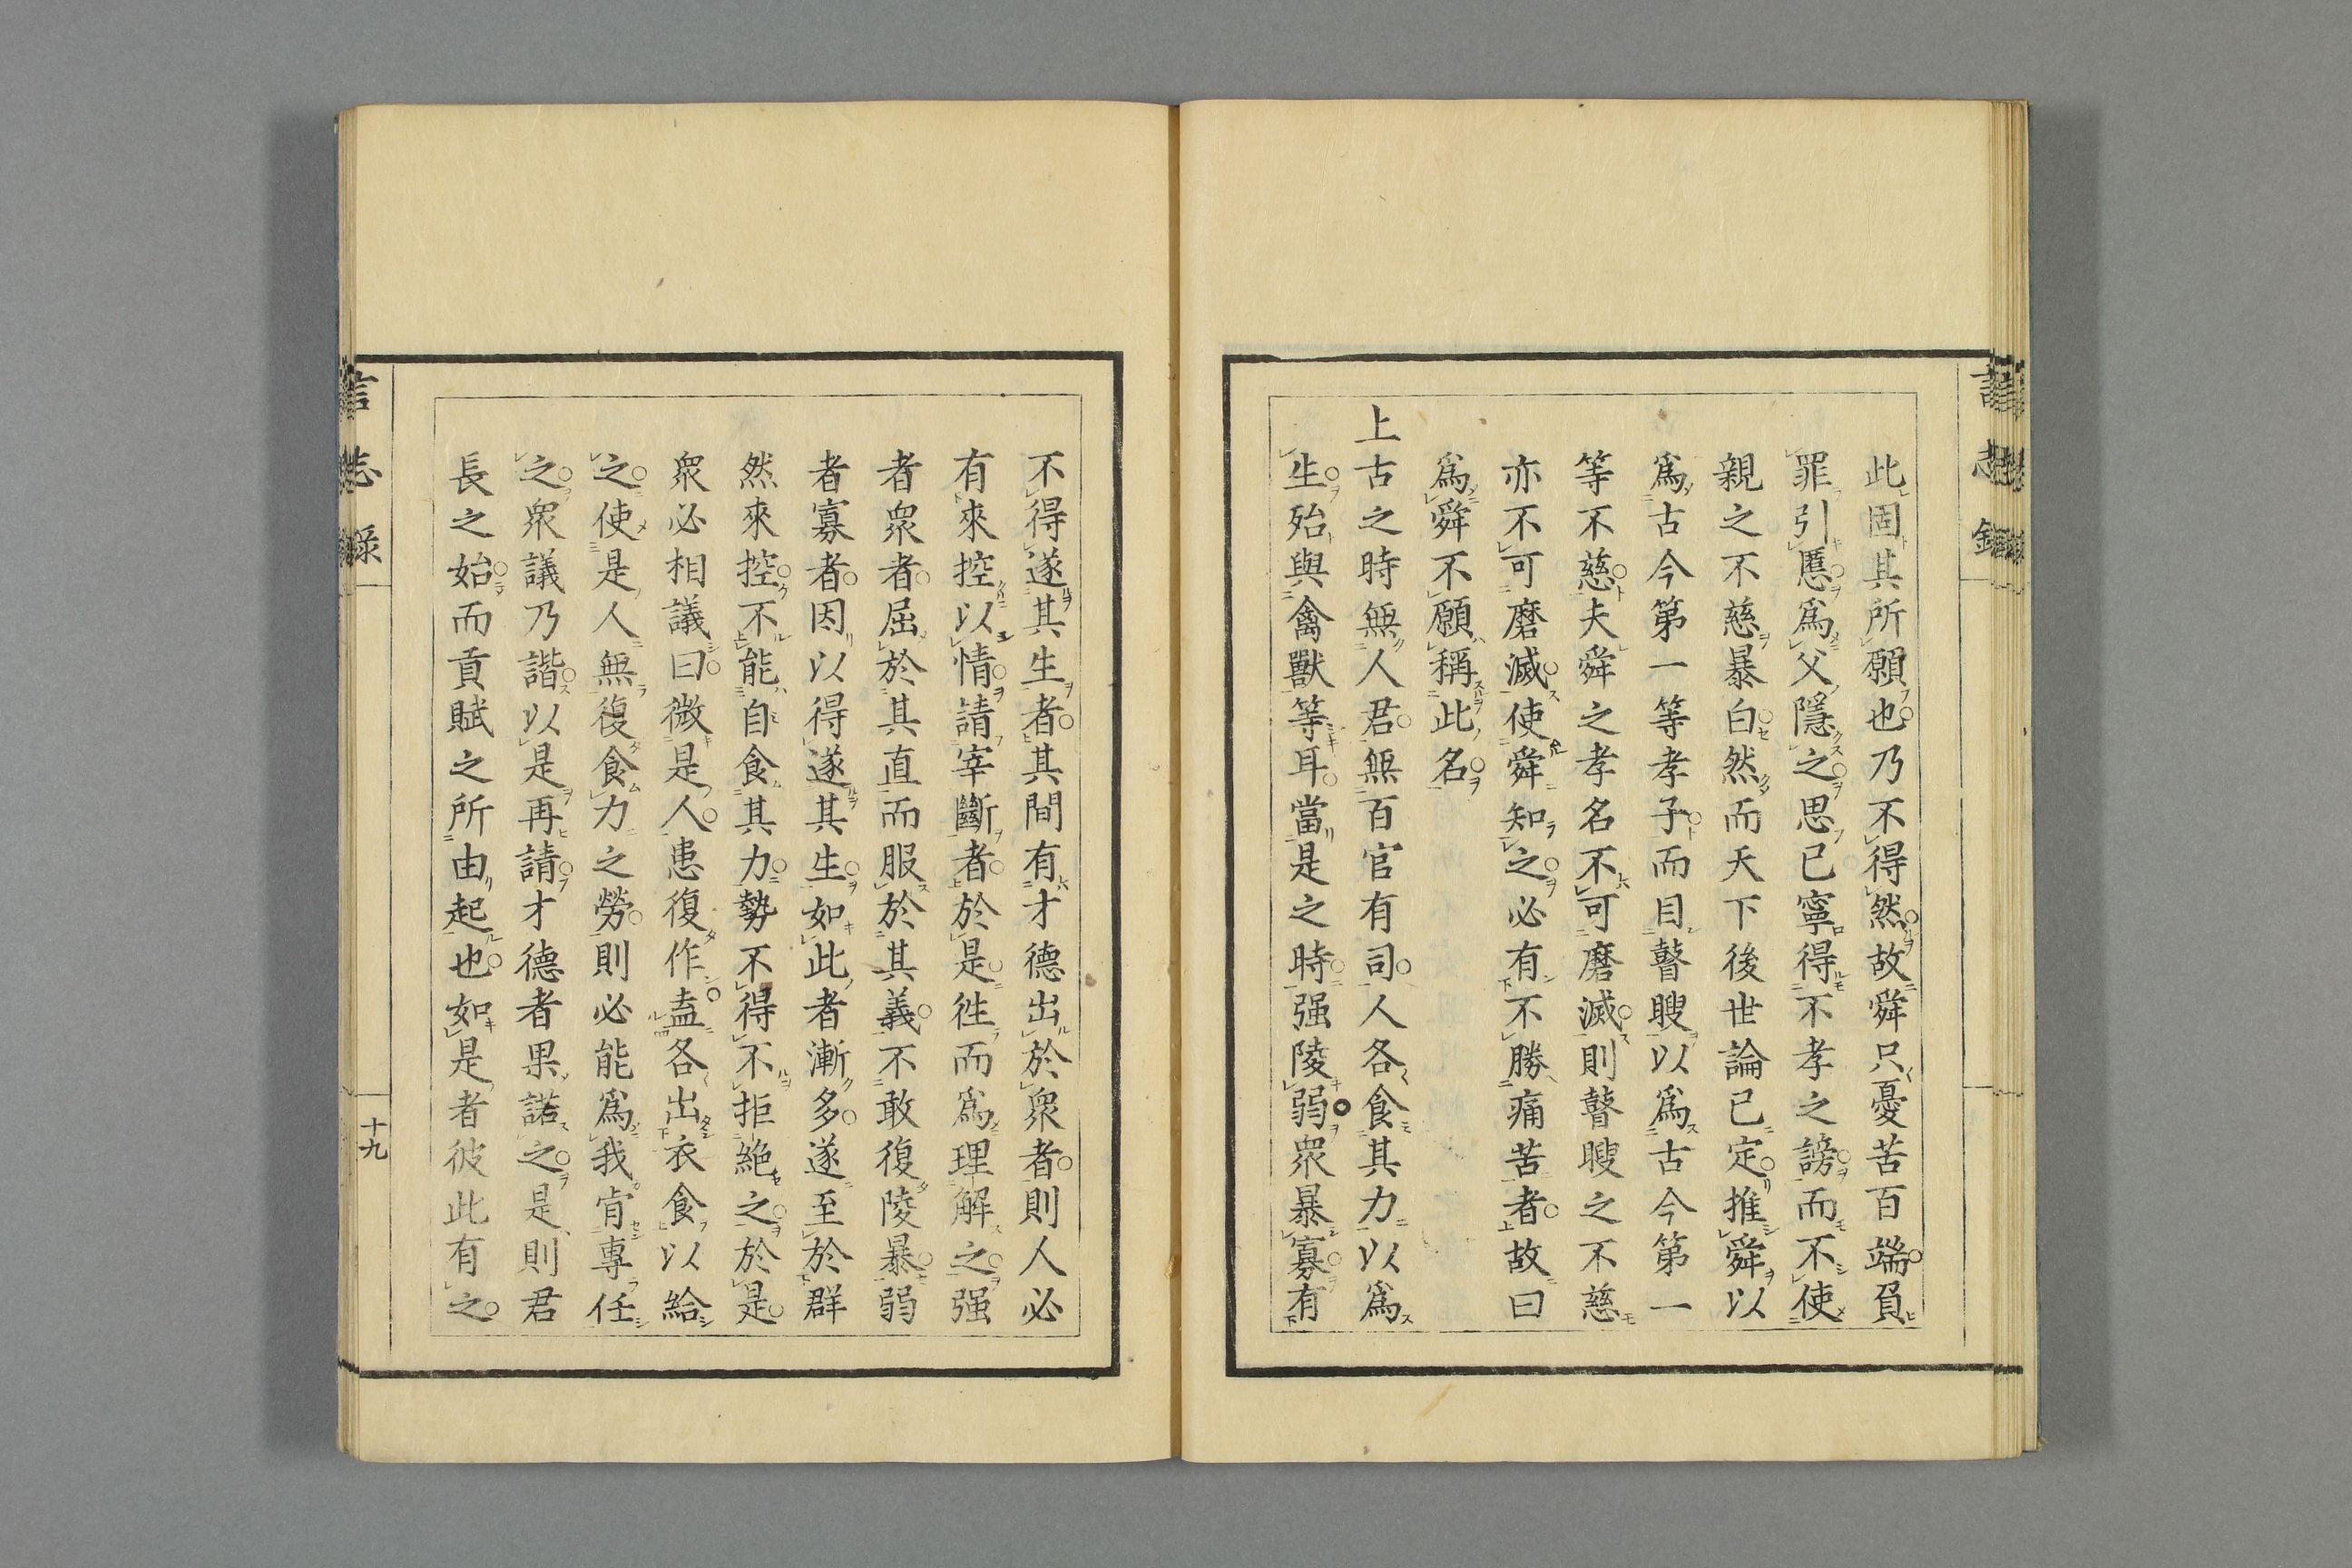 此固其所願也乃不得然故舜只憂苦百端負
罪引慝爲父隱之思己寧得不孝之謗而不使
親之不慈暴白然而天下後世論已定推舜以
爲古今第一等孝子而目瞽瞍以爲古今第一
等不慈夫舜之孝名不可磨滅則瞽瞍之不慈
亦不可磨滅使舜知之必有不勝痛苦者故曰
爲舜不願稱此名
上古之時無人君無百官有司人各食其力以爲
生殆與禽獸等耳當是之時强陵弱衆暴寡有
不得遂其生者其間有才德出於衆者則人必
有來控以情請宰斷者於是徃而爲理解之强
者衆者屈於其直而服於其義不敢復陵暴弱
者寡者因以得遂其生如此者漸多遂至於群
然來控不能自食其力勢不得不拒絶之於是
衆必相議曰微是人患復作盍各出衣食以給
之使是人無復食力之勞則必能爲我肯專任
之衆議乃諧以是再請才德者果諾之是則君
長之始而貢賦之所由起也如是者彼此有之
言志錄
十九